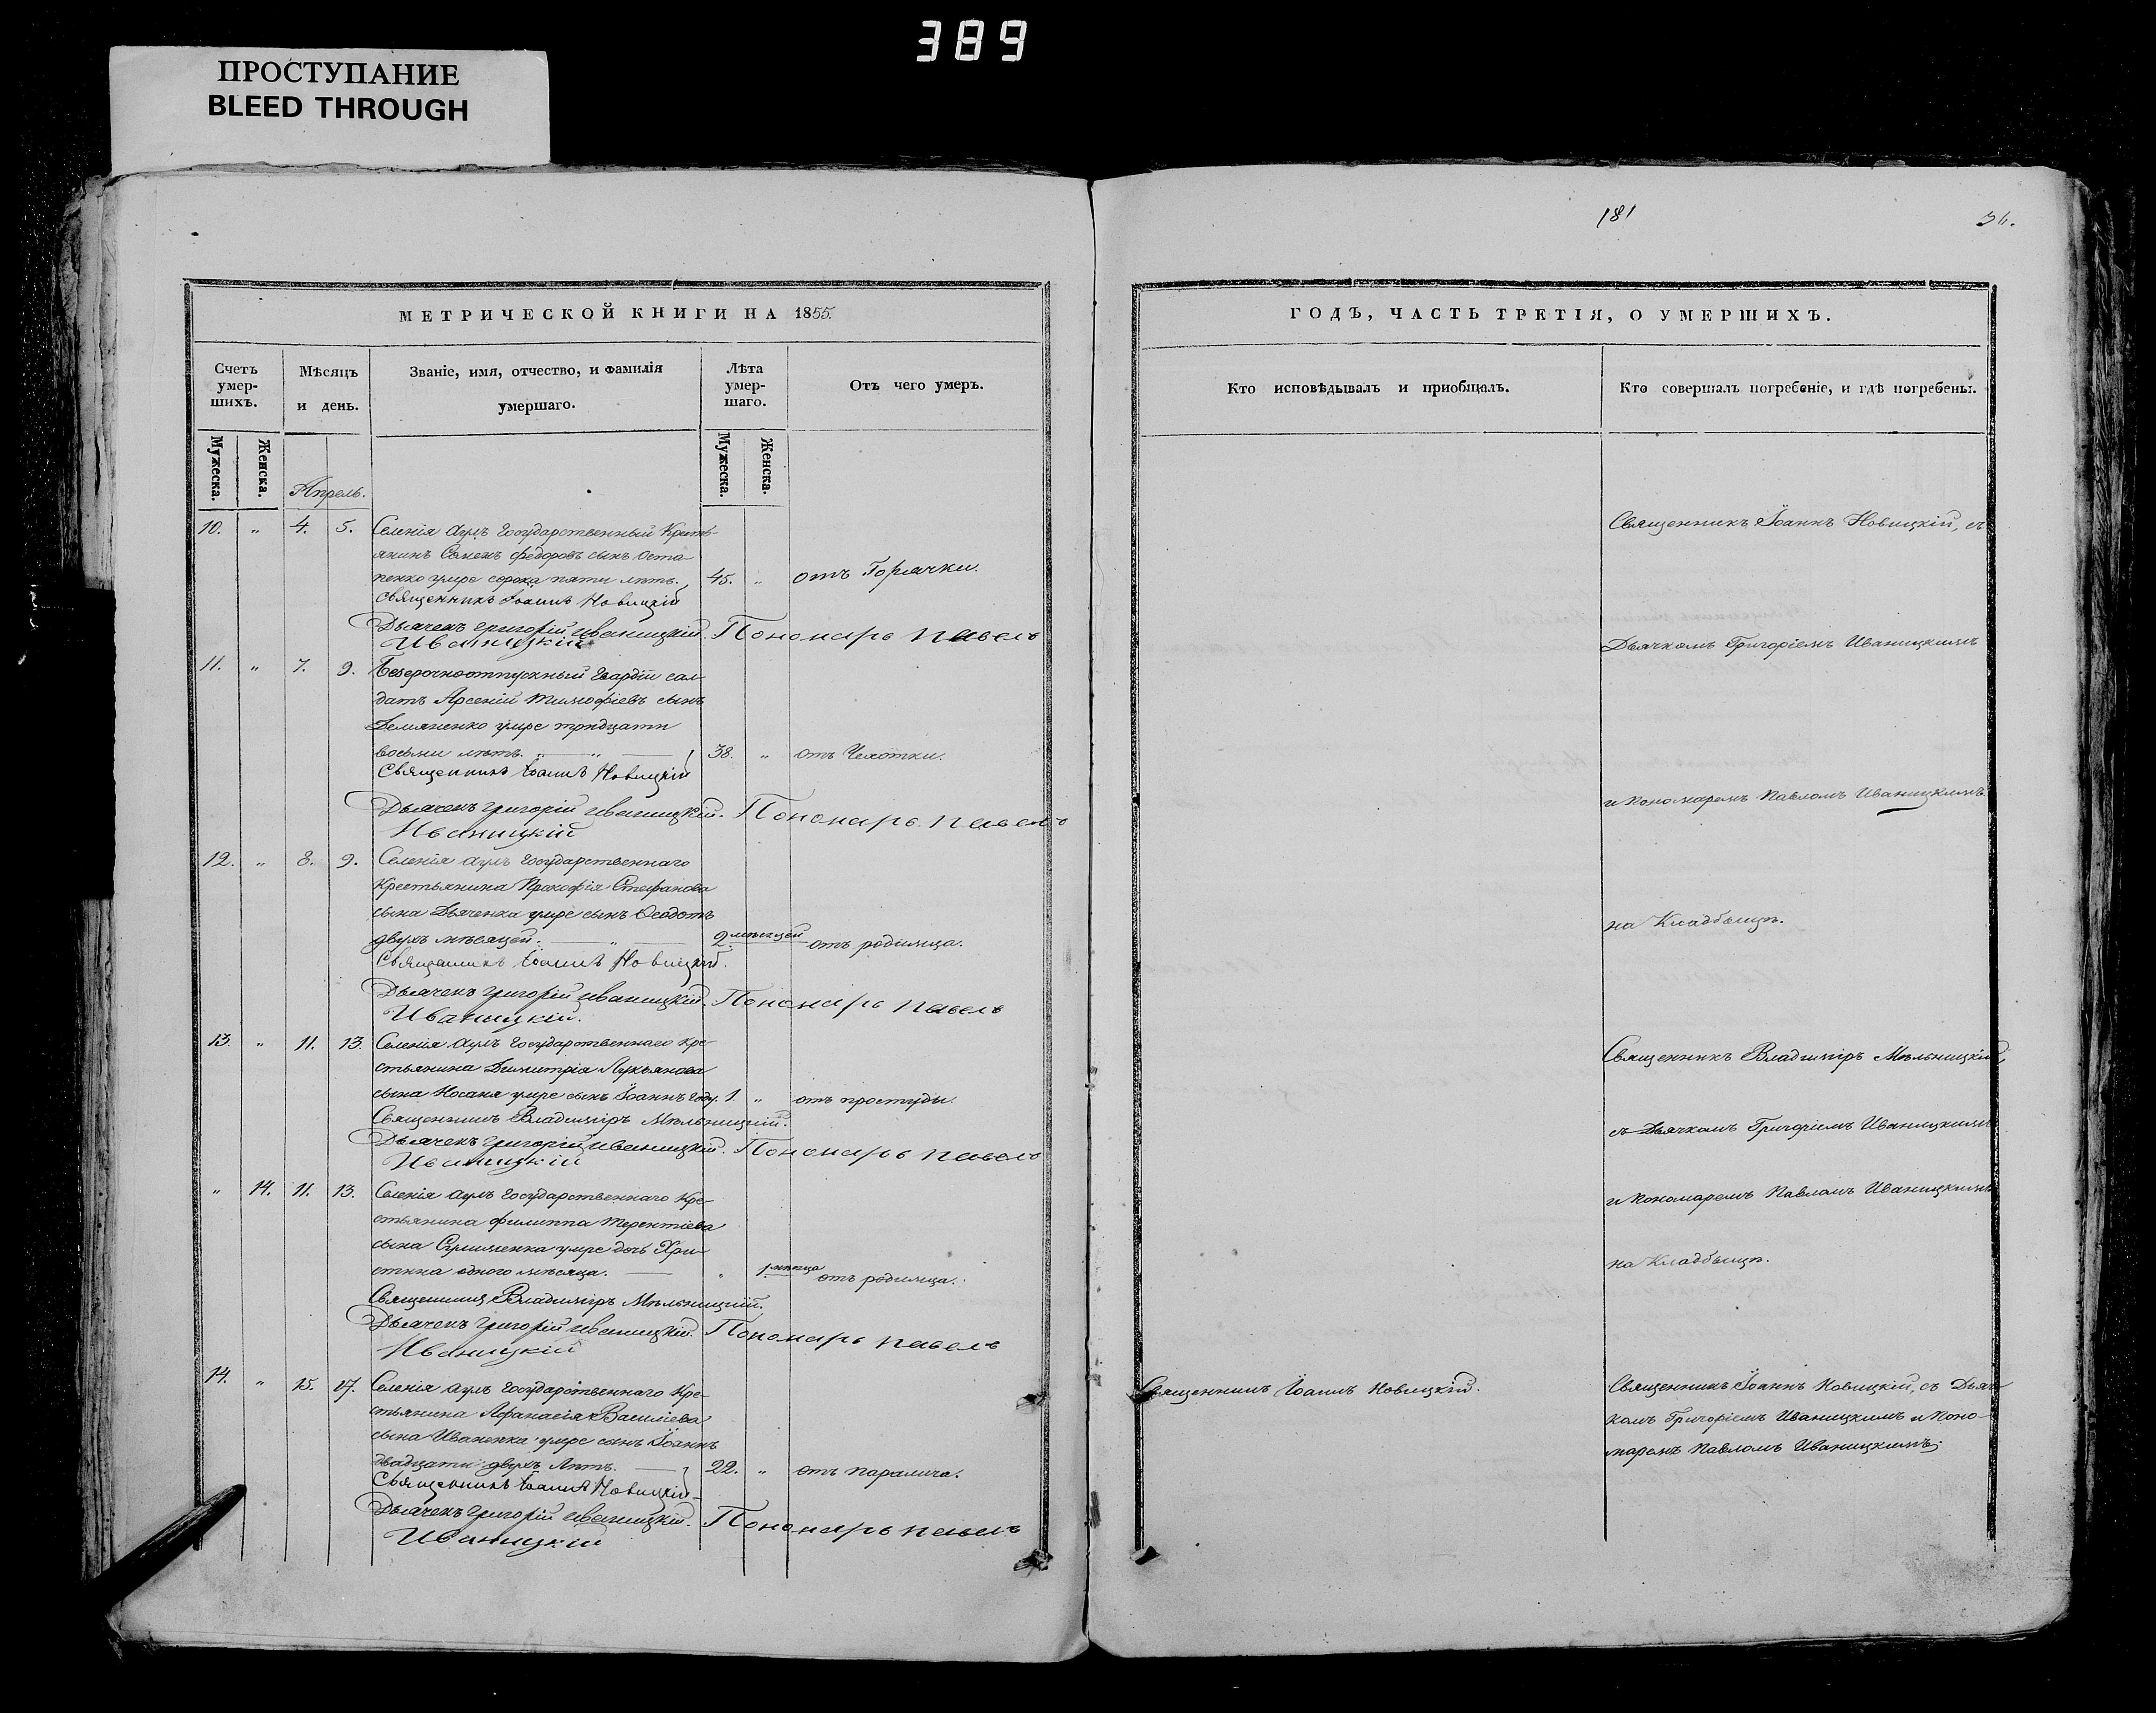 389
ПРОСТУПАНИЕ
BLEED THROUGH
МЕТРИЧЕСКОЙ КНИГИ НА 1855.
Счетъ умер-шихъ.
Мѣсяцъ и день.
Званіе, имя, отчество, и фамилія умершаго.
Лѣта умер-шаго.
Отъ чего умеръ.
Мужеска.
Женска.
Мужеска.
Женска.
Апрель.
10. " 4. 5. Селенія Аулъ Государственный Кресть-
янинъ Семенъ Федоровъ сынъ Оста-
пенко умре сорока пяти лѣтъ. 45. " отъ Горячки.
Священникъ Іоаннъ Новицкій
Дьячекъ Григорій Иваницкій. Пономарь Павелъ
Иваницкій
11. " 7. 9. Безсрочноотпускный Гвардіи сал-
датъ Арсеній Тимофіевъ сынъ
Демяненко умре тридцати
восьми лѣтъ. " 38. " отъ Чехотки.
Священникъ Іоаннъ Новицкій
Дьячекъ Григорій Иваницкій. Пономарь Павелъ
Иваницкій
12. " 8. 9. Селенія Аулъ Государственнаго
Крестьянина Прокофія Стефанова
сына Дяченка умре сынъ Ѳеодотъ
двухъ мѣсяцей. " 2 мѣсяцей отъ родимца.
Священникъ Іоаннъ Новицкій.
Дьячекъ Григорій Иваницкій. Пономарь Павелъ
Иваницкій.
13. " 11. 13. Селенія Аулъ Государственнаго Кре-
стьянина Димитрія Лукьянова
сына Носаня умре сынъ Іоаннъ году. 1. " отъ простуды.
Священникъ Владиміръ Мѣльницкій.
Дьячекъ Григорій Иваницкій. Пономарь Павелъ
Иваницкій
" 14. 11. 13. Селенія Аулъ Государственнаго Кре-
стьянина Филиппа Терентіева
сына умре дочь Хри-
стина одного мѣсяца. " 1. мѣсяца отъ родимца.
Священникъ Владиміръ Мѣльницкій.
Дьячекъ Григорій Иваницкій. Пономарь Павелъ
Иваницкій
14. " 15. 17. Селенія Аулъ Государственнаго Кре-
стьянина Афанасія Василіева
сына Иваненка умре сынъ Іоаннъ
двадцати двухъ лѣтъ. 22. " отъ паралича.
Священникъ Іоаннъ Новицкій
Дьячекъ Григорій Иваницкій. Пономарь Павелъ
Иваницкій
181
ГОДЪ, ЧАСТЬ ТРЕТІЯ, О УМЕРШИХЪ.
Кто исповѣдывалъ и пріобщалъ.
Кто совершалъ погребеніе, и гдѣ погребены.
Священникъ Іоаннъ Новицкій, съ
Дьячкомъ Григоріемъ Иваницкимъ
и Пономаремъ Павломъ Иваницкимъ
на Кладбищѣ.
Священникъ Владиміръ Мѣльницкій,
съ Дьячкомъ Григоріемъ Иваницкимъ
и Пономаремъ Павломъ Иваницкимъ
на Кладбищѣ.
Священникъ Іоаннъ Новицкій.
Священникъ Іоаннъ Новицкій, съ Дьяч-
комъ Григоріемъ Иваницкимъ и Поно-
маремъ Павломъ Иваницкимъ;